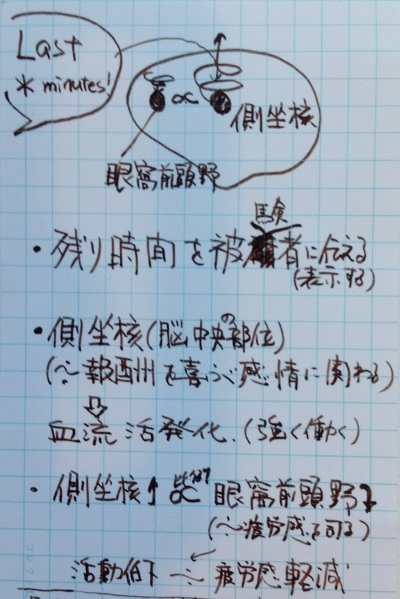 Last
* minutes!
∝
側坐核
眼窩前頭野
・残り時間を被験者に伝える
(表示する)
・側坐核(脳中央の部位)
(~報酬を喜ぶ感情に関わる)
⇩
血流活発化.(強く働く)
・側坐核↑ ∝ 眼窩前頭野↓
(~疲労感を司る)
活動低下 ~ 疲労感軽減